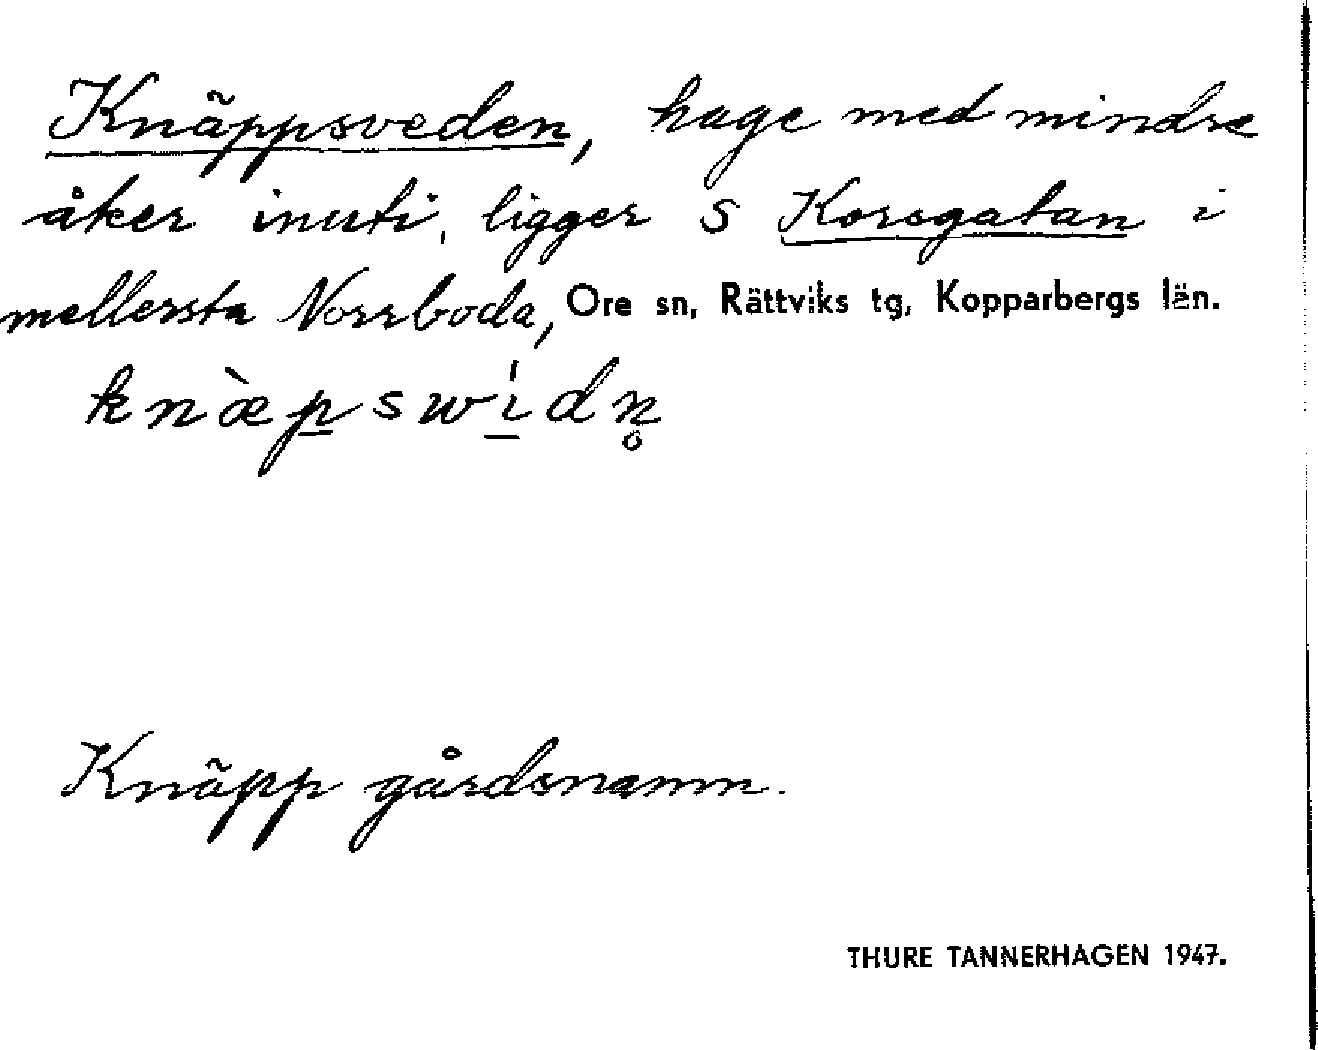 Knäppsveden, hage med mindre
åker inuti, ligger S Korsgatan i
mellersta Norrboda, Ore sn, Rättviks tg, Kopparbergs län.
knæ̀p̲swi̲̍dn̥
Knäpp gårdsnamn.
THURE TANNERHAGEN 1947.